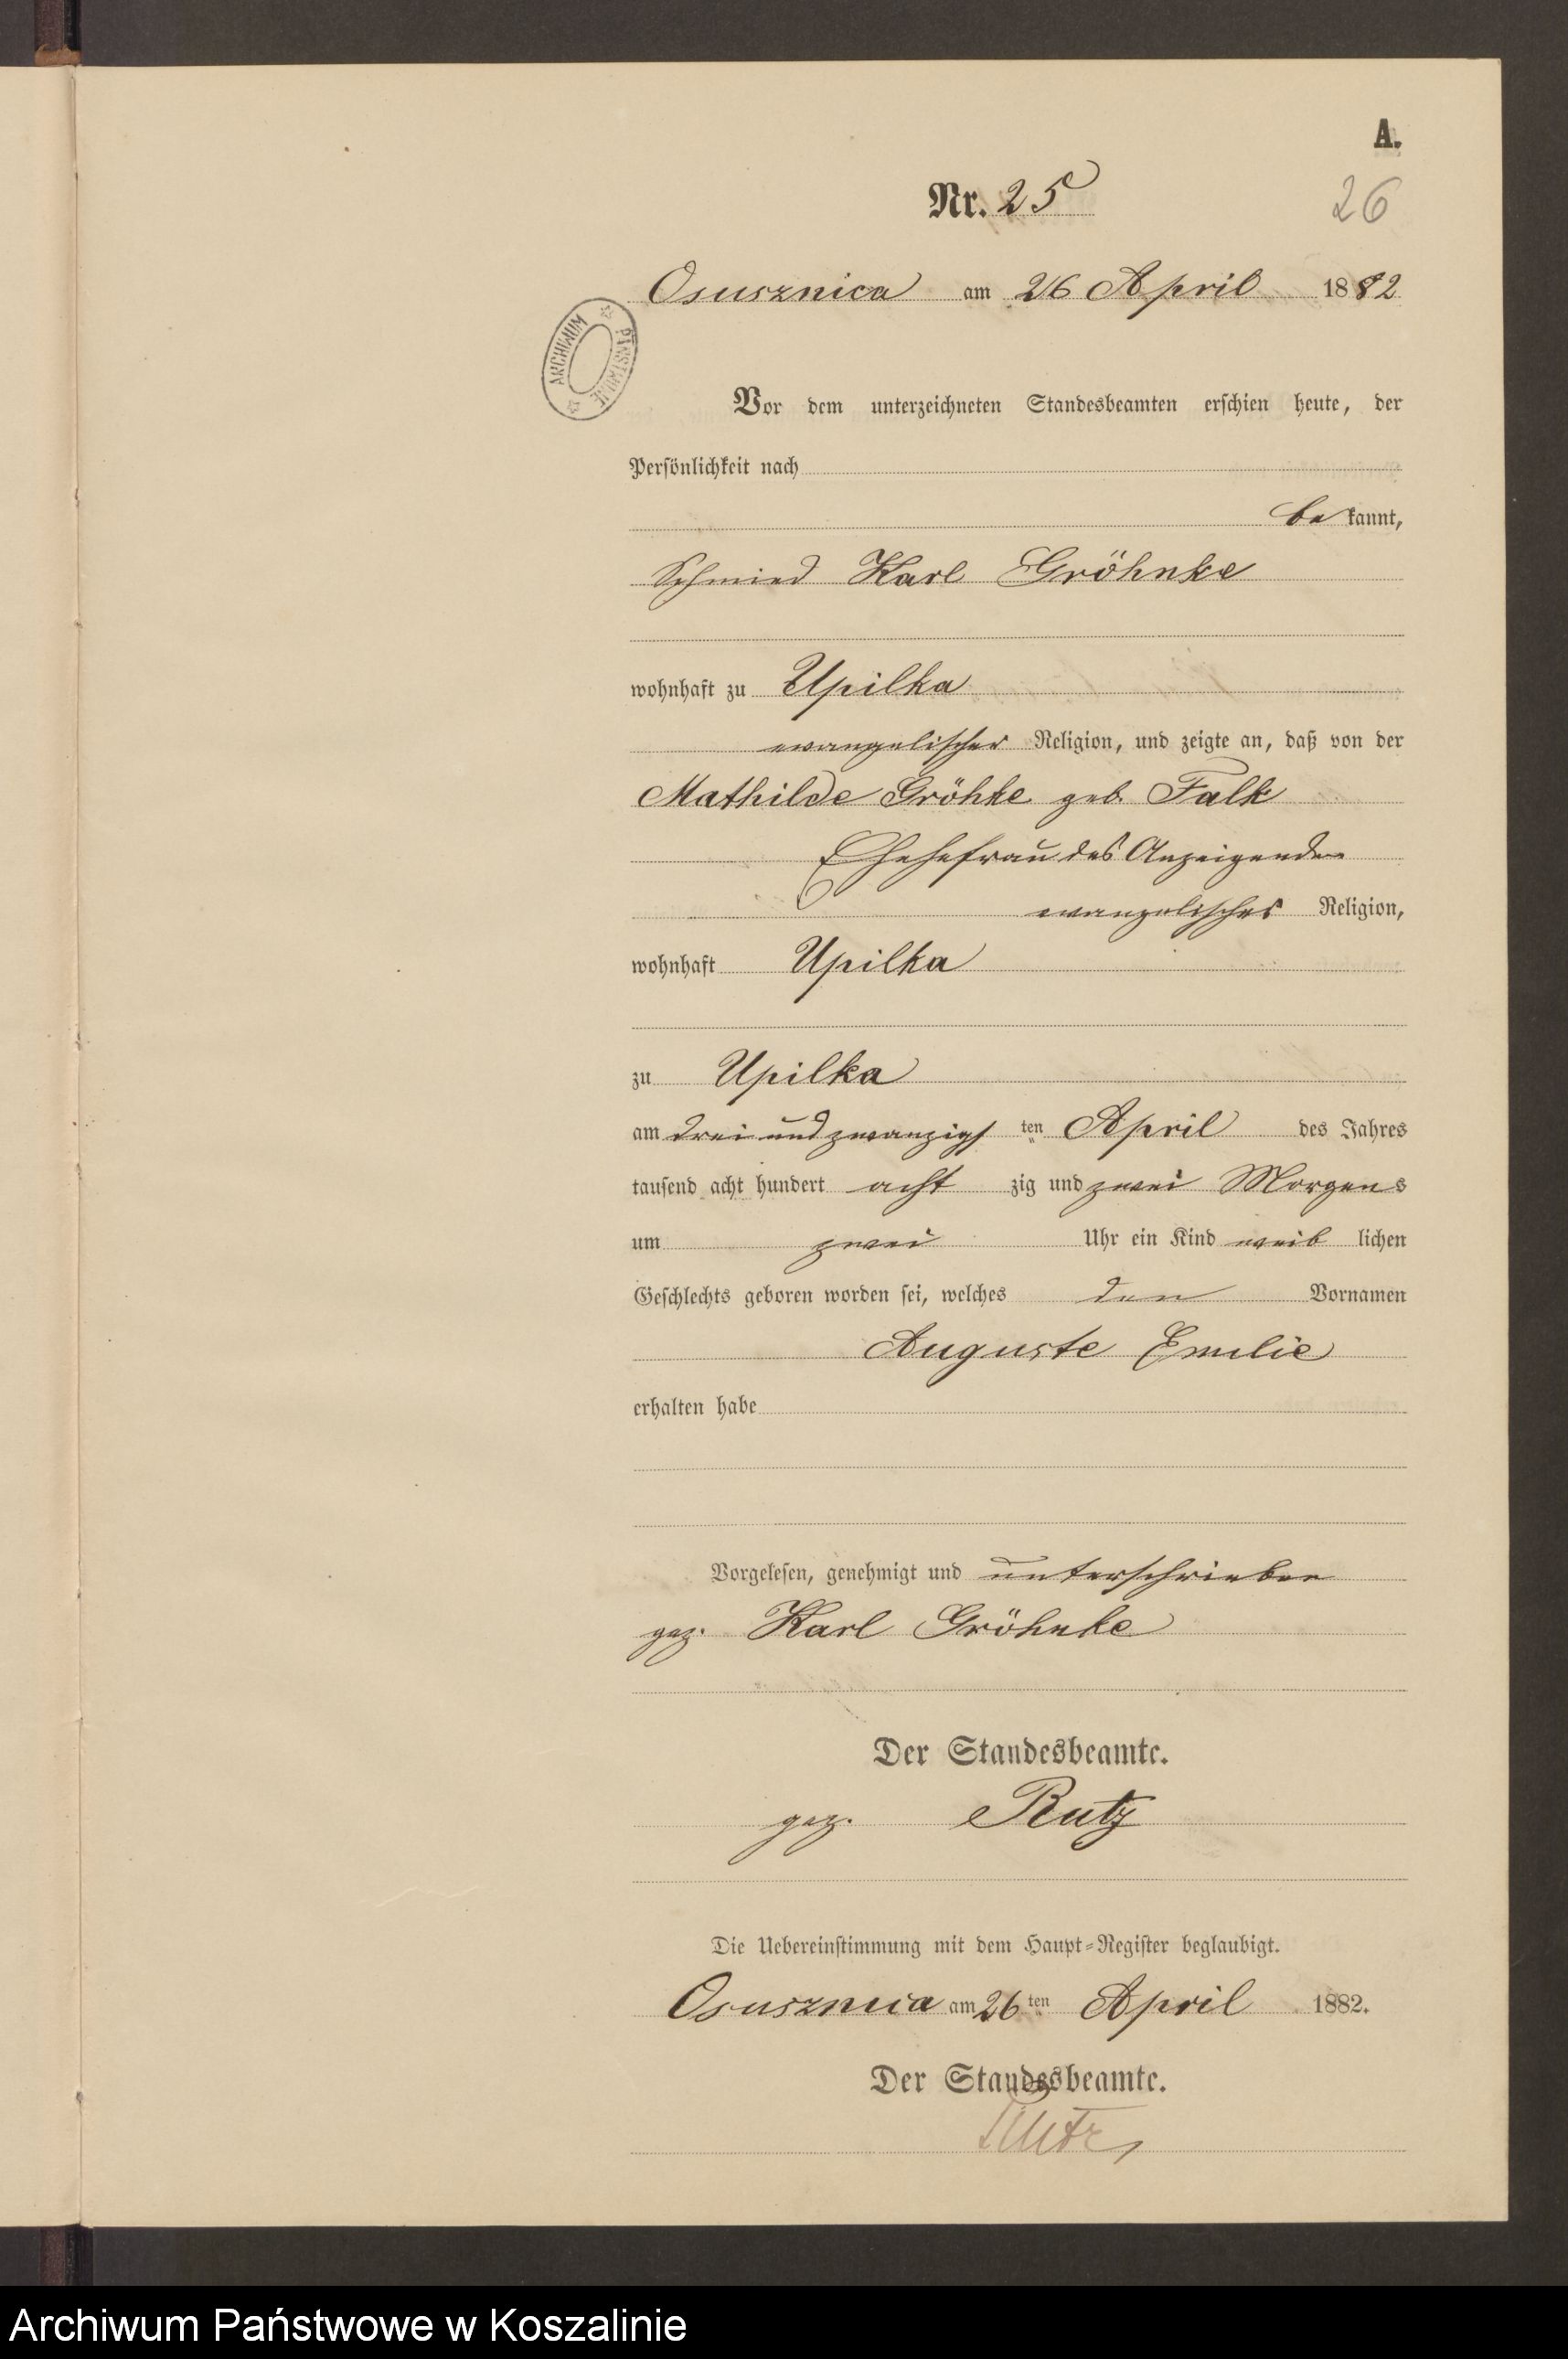 A.
Nr. 25
26
Osusznica am 26 April 1882
ARCHIWUM PAŃSTWOWE
Vor dem unterzeichneten Standesbeamten erschien heute, der
Persönlichkeit nach
be kannt,
Schmied Karl Gröhnke
wohnhaft zu Upilka
evangelischer Religion, und zeigte an, daß von der
Mathilde Gröhke geb. Falk
Ehehefrau des Anzeigenden
evangelischer Religion,
wohnhaft Upilka
zu Upilka
am drei und zwanzigs ten April des Jahres
tausend acht hundert acht zig und zwei Morgens
um zwei Uhr ein Kind weib lichen
Geschlechts geboren worden sei, welches den Vornamen
Auguste Emilie
erhalten habe
Vorgelesen, genehmigt und unterschrieben
gez. Karl Gröhnke
Der Standesbeamte.
gez. Rutz
Die Uebereinstimmung mit dem Haupt-Register beglaubigt.
Osusznica am 26 ten April 1882.
Der Standesbeamte.
Rutz
Archiwum Państwowe w Koszalinie